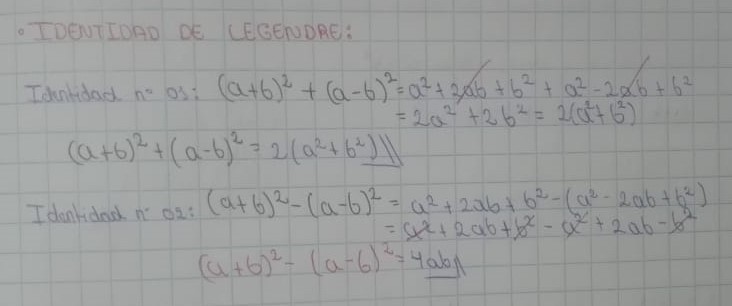 • IDENTIDAD DE LEGENDRE:
Identidad nº 01: (a+b)² + (a-b)² = a² + 2ab + b² + a² - 2ab + b²
= 2a² + 2b² = 2(a²+b²)
(a+b)² + (a-b)² = 2(a²+b²)
Identidad nº 02: (a+b)² - (a-b)² = a² + 2ab + b² - (a² - 2ab + b²)
= a² + 2ab + b² - a² + 2ab - b²
(a+b)² - (a-b)² = 4ab